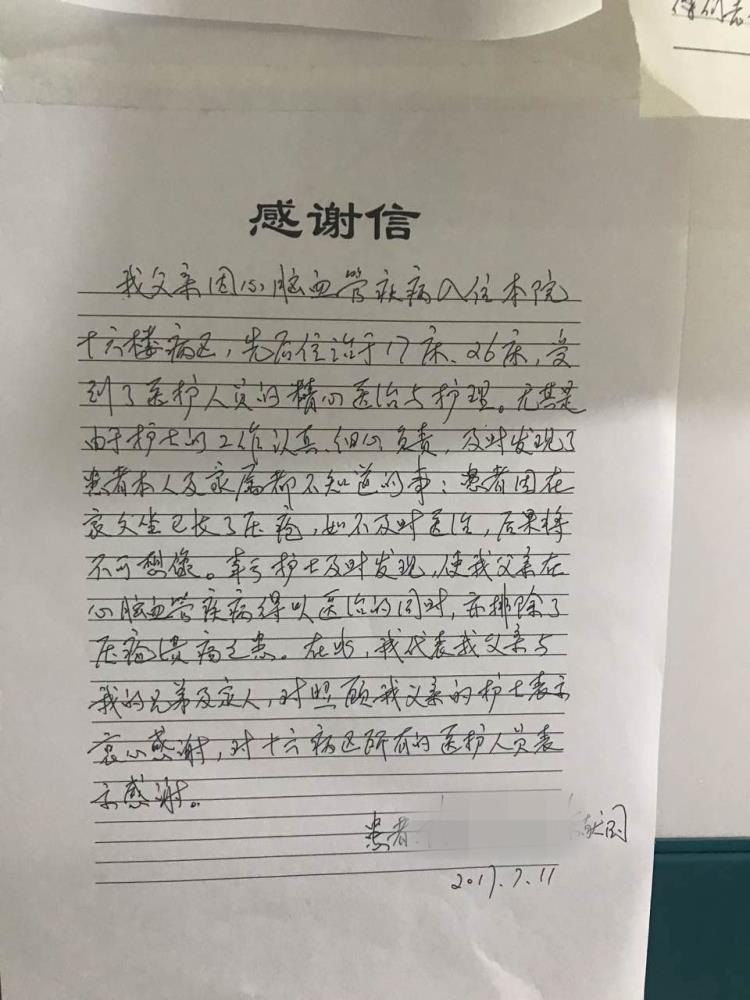 感谢信
我父亲因心脑血管疾病入住本院
十六楼病区，先后住诊于17床、26床，受
到了医护人员的精心医治与护理。尤其是
由于护士的工作认真、细心负责，及时发现了
患者本人及家属都不知道的事：患者因在
家久坐已长了压疮，如不及时医治，后果将
不可想像。幸亏护士及时发现，使我父亲在
心脑血管疾病得以医治的同时，亦排除了
压疮溃病之患。在此，我代表我父亲与
我的兄弟及家人，对照顾我父亲的护士表示
衷心感谢，对十六病区所有的医护人员表
示感谢。
患者：
2017.7.11